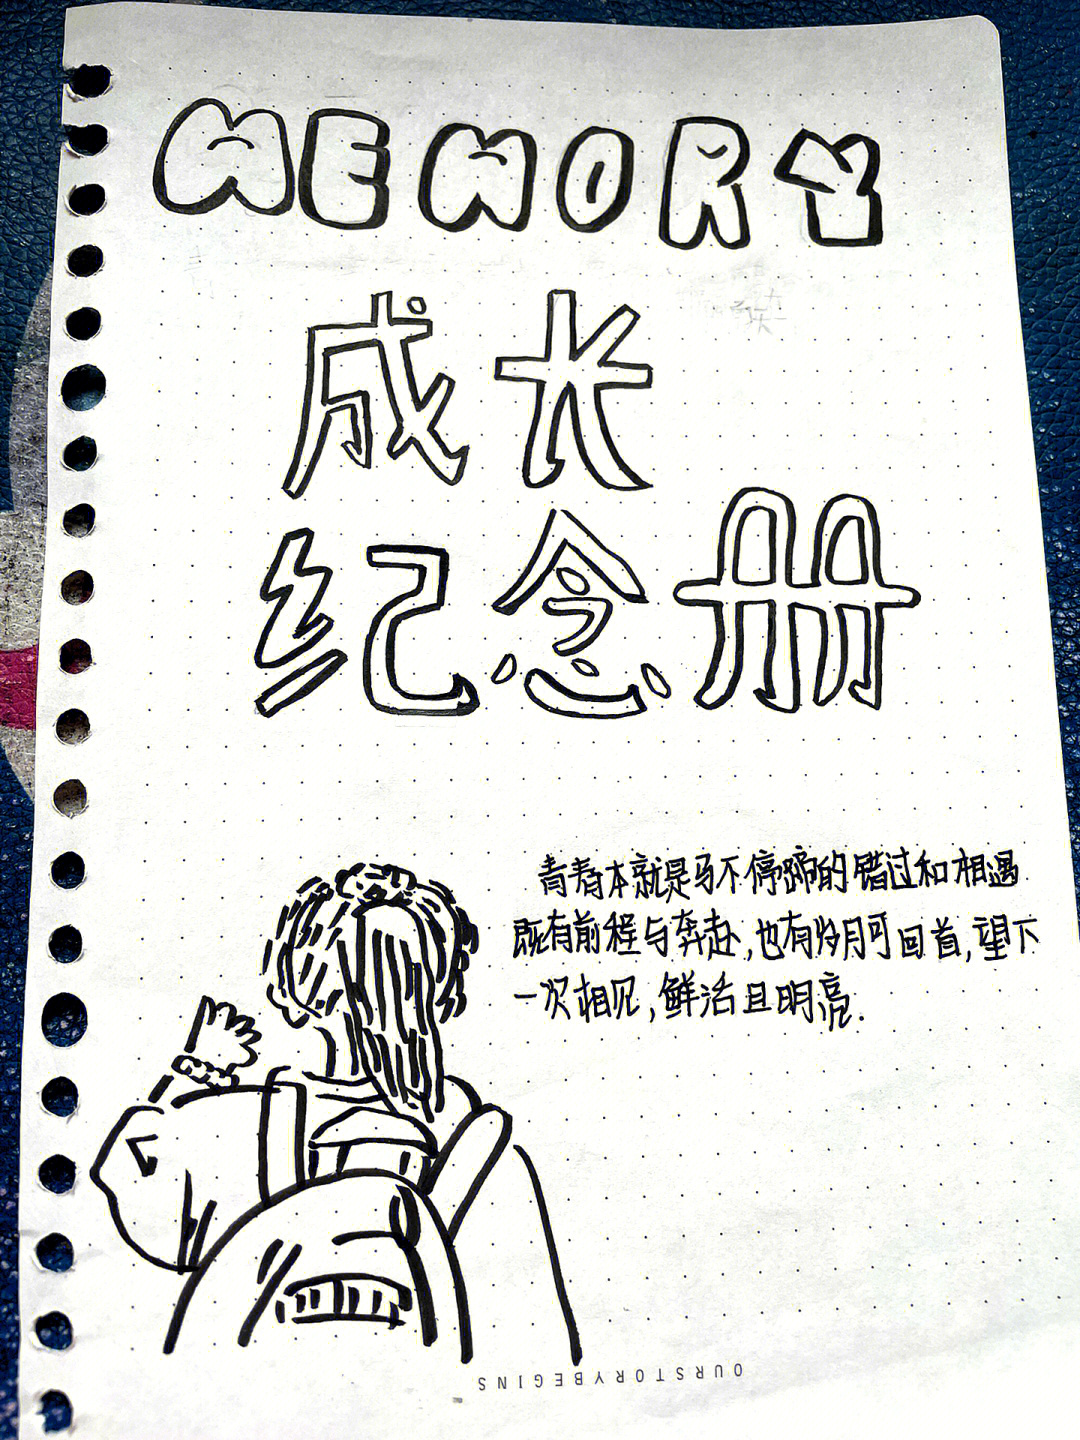 MEMORY
成长
纪念册
青春本就是马不停蹄的错过和相遇
既有前程与奔赴,也有岁月可回首,望下
一次相见,鲜活且明亮.
OURSTORYBEGINS